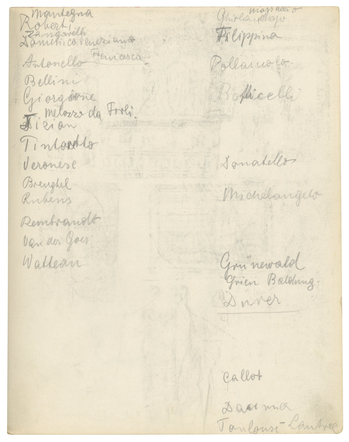 Mantegna
Robert
Domenico Veneziano
Antonello Francesca
Bellini
Giorgione
Melozzo da Forli
Tizian
Tintoretto
Veronese
Breughel
Rubens
Rembrandt
Van der Goes
Watteau
Ghirlandajo
Filippina
Pollaiuolo
Botticelli
Donatello
Michelangelo
Grünewald
Grien Baldung
Dürer
Callot
Daumier
Toulouse-Lautrec